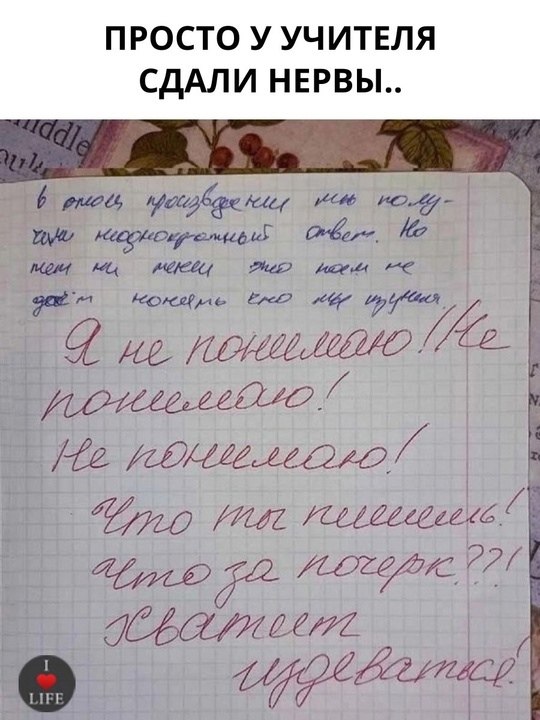 ПРОСТО У УЧИТЕЛЯ
СДАЛИ НЕРВЫ..
ddle
в этом произведении мы полу-
чили неоднократный ответ. Но
тем ни менее это нам не
даёт понять что мы изучили
Я не понимаю! Не
понимаю!
Не понимаю!
Что ты пишешь!
Что за почерк??!
Хватит
издеваться!
I
LIFE